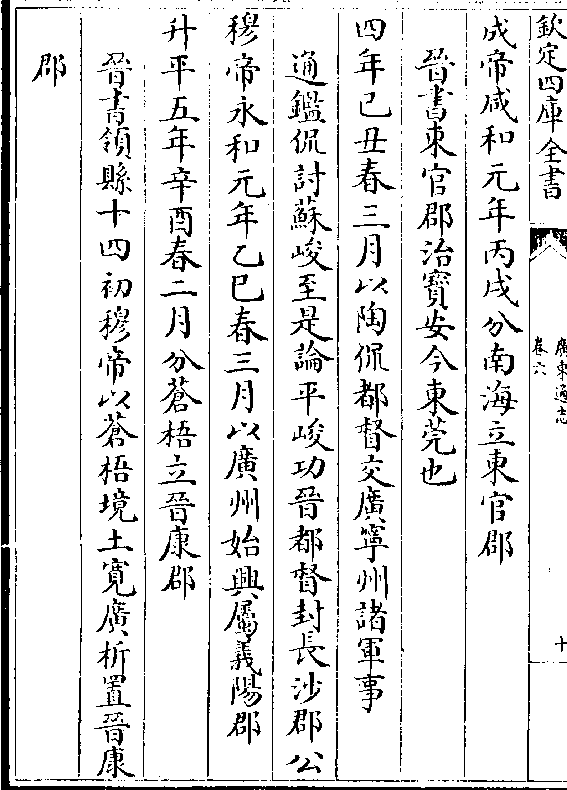 欽定四庫全書
廣東通志
卷六
十
成帝咸和元年丙戌分南海立東官郡
晉書東官郡治寳安今東莞也
四年己丑春三月以陶侃都督交廣寧州諸軍事
通鑑侃討蘇峻至是論平峻功晉都督封長沙郡公
穆帝永和元年乙巳春三月以廣州始興屬義陽郡
升平五年辛酉春二月分蒼梧立晉康郡
晉書領縣十四初穆帝以蒼梧境土寛廣析置晉康
郡